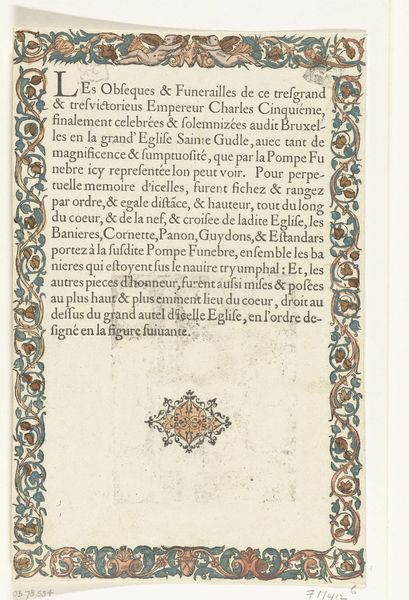 LEs Obseques & Funerailles de ce tresgrand
& tresvictorieus Empereur Charles Cinquiéme,
finalement celebrées & solemnizées audit Bruxel-
les en la grand' Eglise Sainte Gudle, avec tant de
magnificence & sumptuosité, que par la Pompe Fu
nebre icy representée lon peut voir. Pour perpe-
tuelle memoire d'icelles, furent fichez & rangez
par ordre, & egale distãce, & hauteur, tout du long
du coeur, & de la nef, & croisee de ladite Eglise, les
Banieres, Cornette, Panon, Guydons, & Estandars
portez à la susdite Pompe Funebre, ensemble les ba
nieres qui estoyent sus le navire tryumphal: Et, les
autres pieces d'honneur, furent aussi mises & posées
au plus haut & plus eminent lieu du coeur, droit au
dessus du grand autel d'icelle Eglise, en l'ordre de-
signé en la figure suivante.